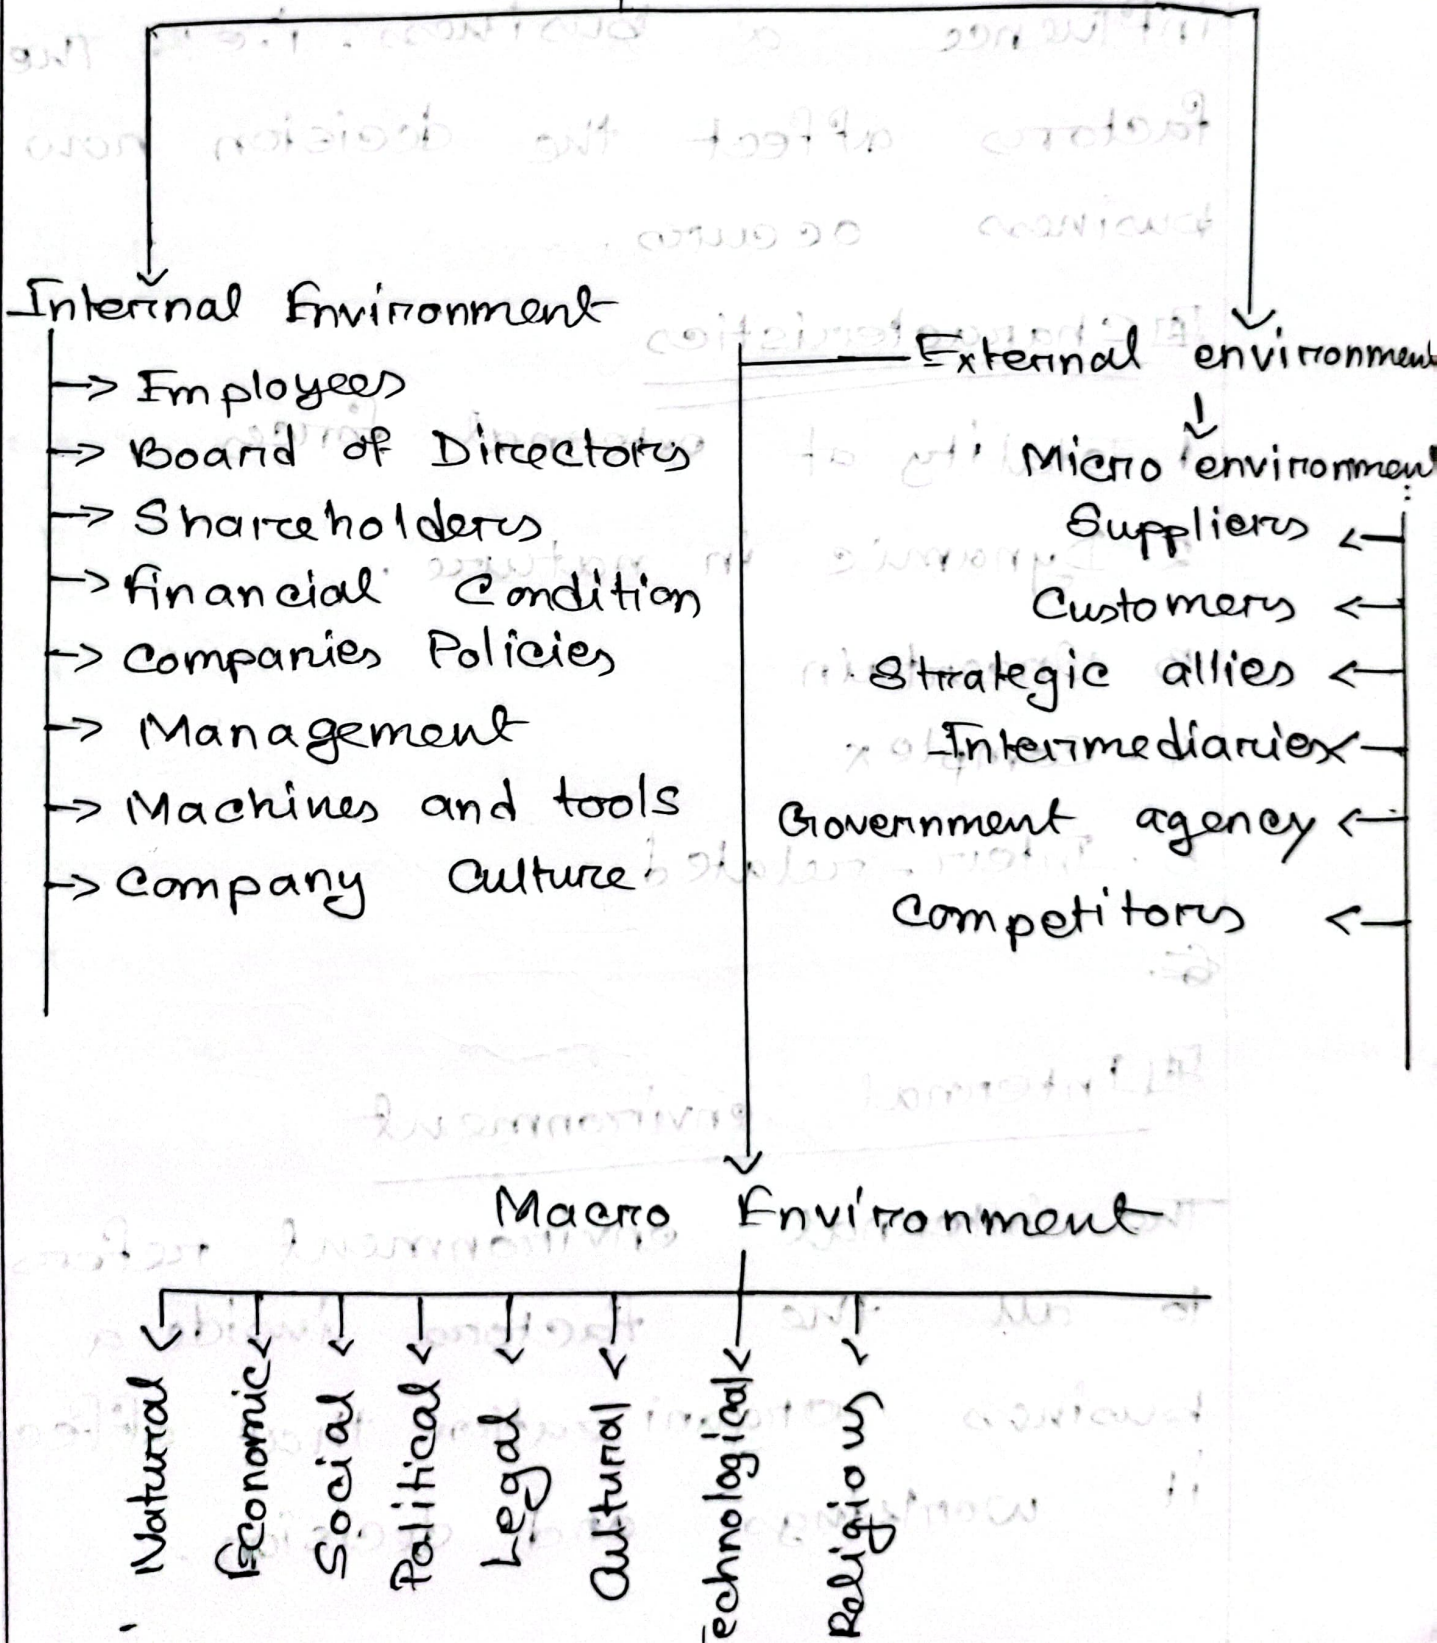 Internal Environment
Employees
Board of Directors
Shareholders
Financial Condition
Companies Policies
Management
Machines and tools
Company Culture
External environment
Micro environmen
Suppliers
Customers
Strategic allies
Intermediaries
Government agency
Competitors
Macro Environment
Natural
Economic
Social
Political
Legal
Cultural
Technological
Religious